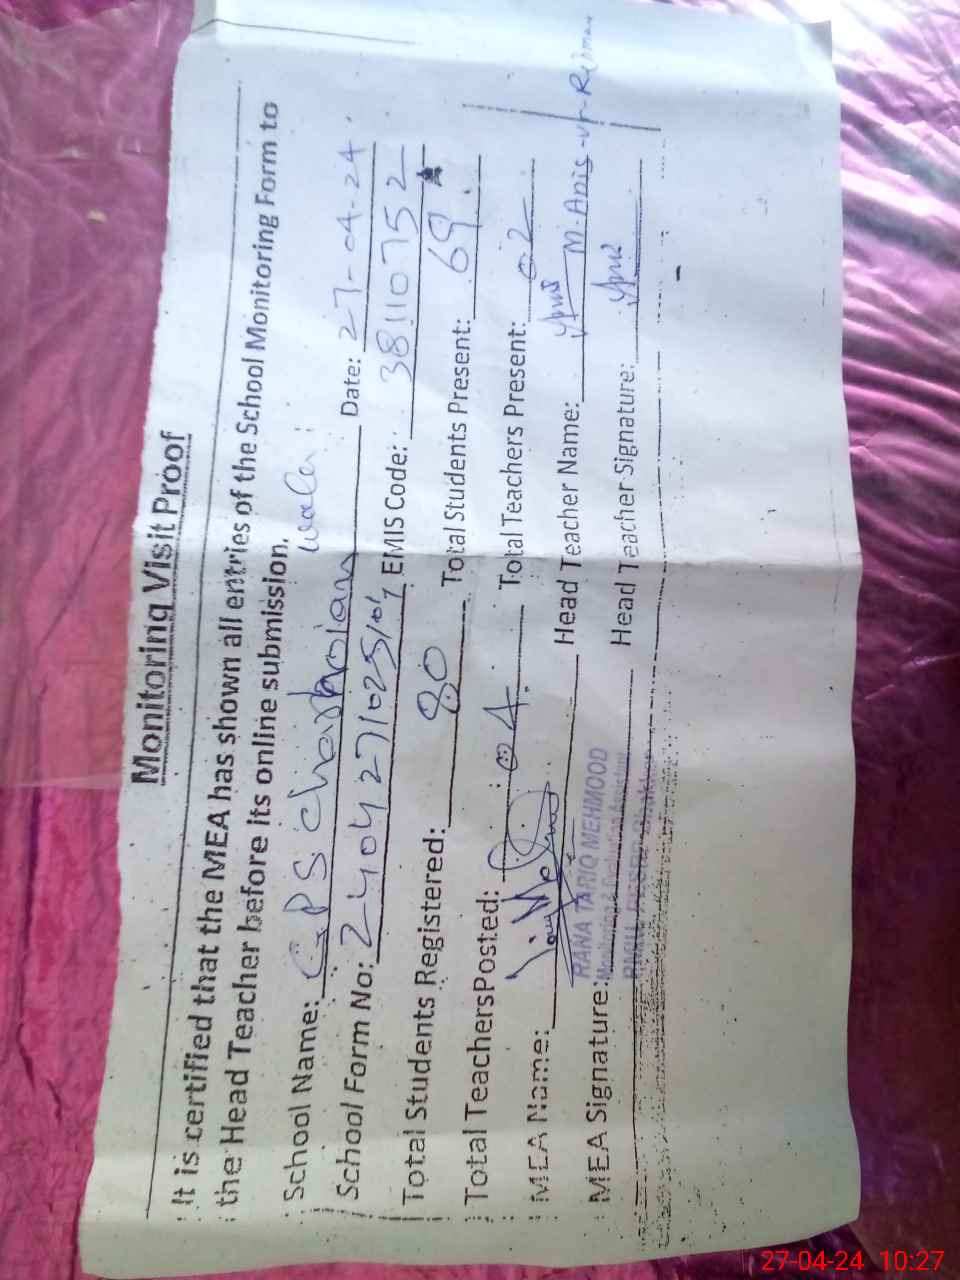 Monitoring Visit Proof
It is certified that the MEA has shown all entries of the School Monitoring Form to
the Head Teacher before its online submission.
School Name: GPS wala Date: 27-04-24
School Form No: EMIS Code: 38110752
Total Students Registered: 80 Total Students Present: 69
Total TeachersPosted: 04 Total Teachers Present: 02
MEA Name: Head Teacher Name: M. Anis-ur-Rehman
MEA Signature: Head Teacher Signature:
RANA TARIQ MEHMOOD
Monitoring & Evaluation Assistant
27-04-24 10:27